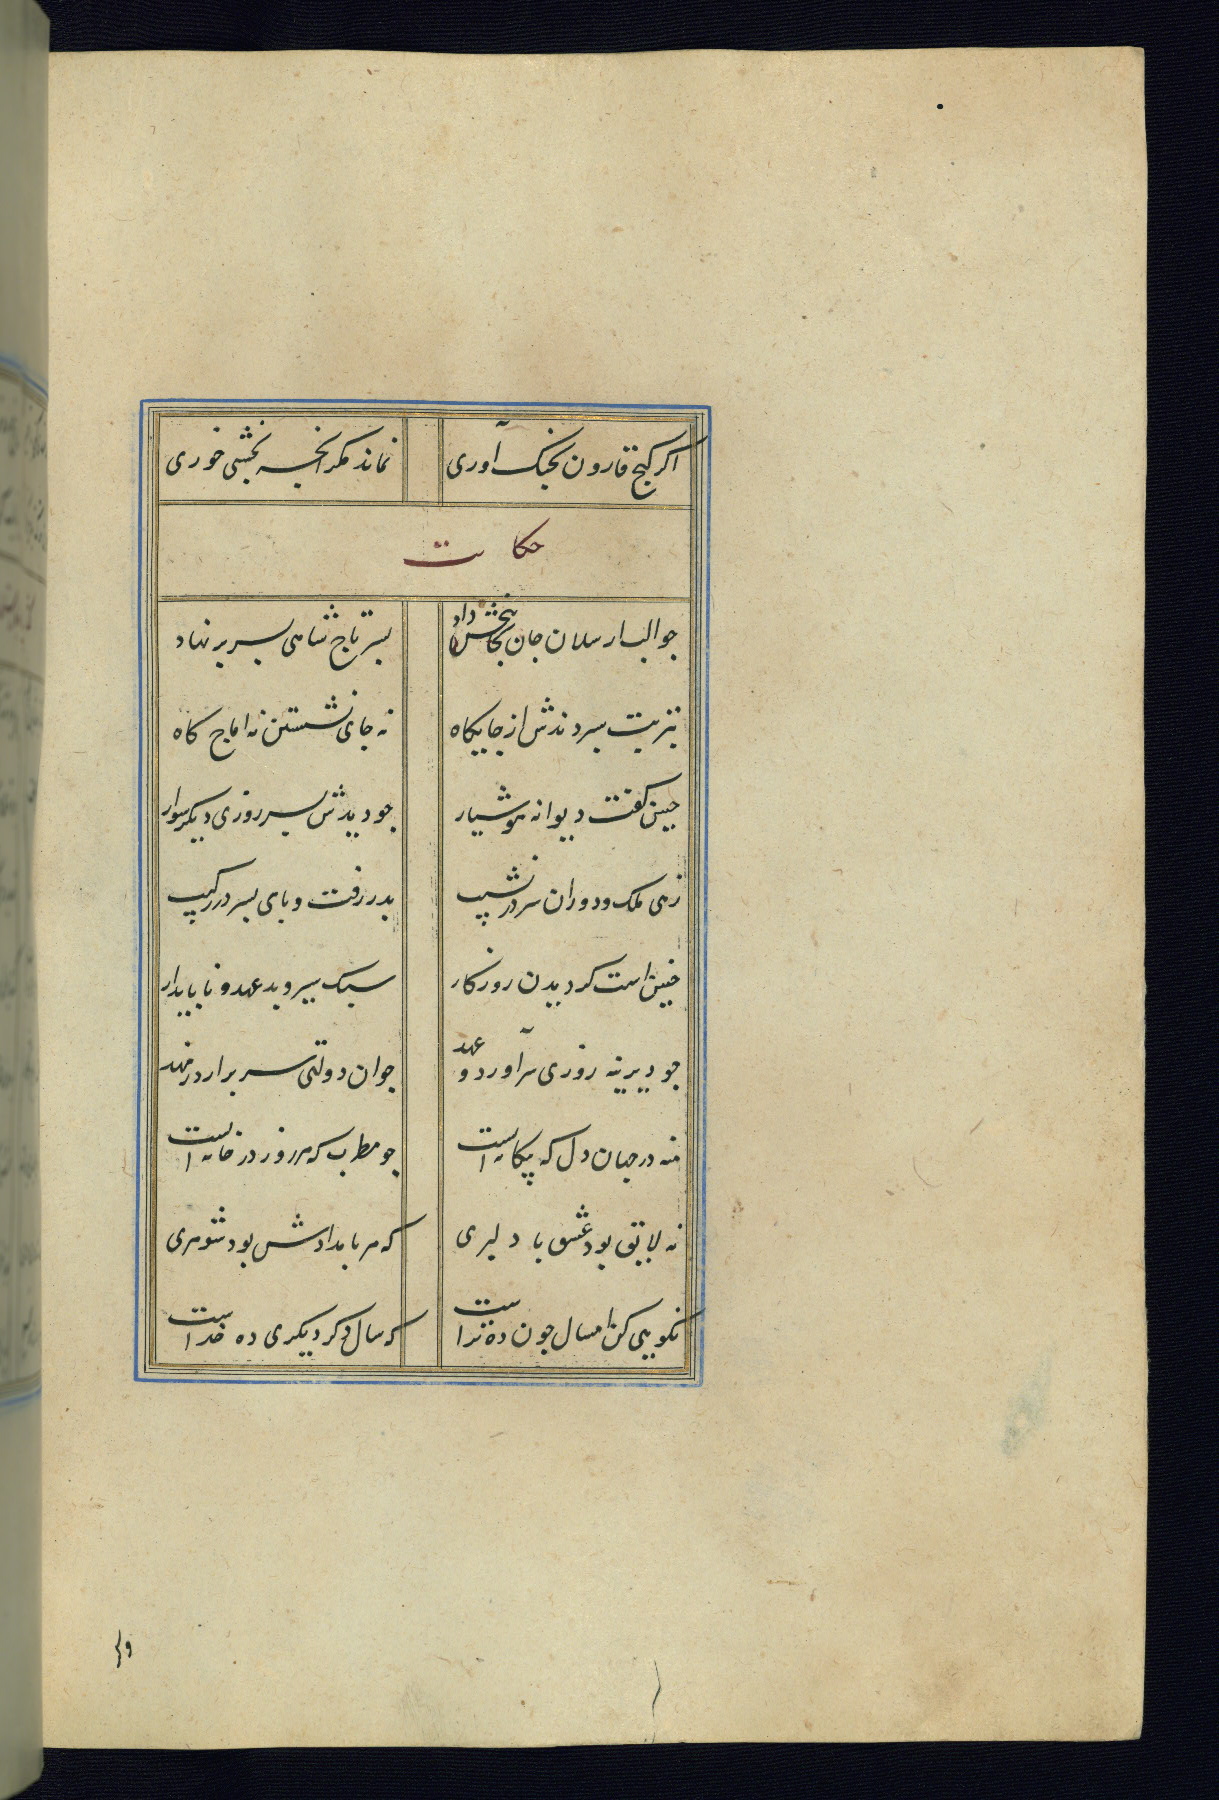 اکر کنج قارون بجنک آوری نماند مکر آنچه بخشی خوری
حکایت
جو الب ارسلان جان بجان بخش داد بسر تاج شاهی بسر بر نهاد
بتربت سبردندش از جایکاه نه جای نشستن نه اماج کاه
جنین کفت دیوانه هوشیار جو دیدش بسر روزی دیکر سوار
زهی ملک و دوران سر در نشیب بدر رفت و بای بسر در رکیب
جنین است کردیدن روزکار سبک سیر و بد عهد و نابایدار
جو دیرینه روزی سرآورد و عهد جوان دولتی سر برارد ز مهد
منه در جهان دل که بیکانه است جو مطرب که هر روز در خانه است
نه لایق بود عشق با دلبری که هر بامدادش بود شوهری
نکویی کن امسال جون ده تراست که سال دکر دیکری ده خداست